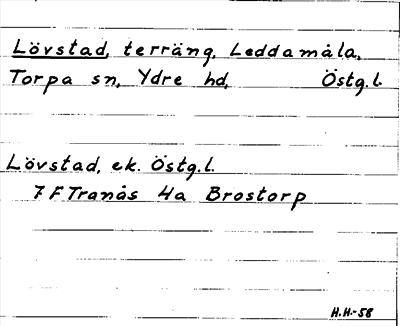 Lövstad, terräng, Leddamåla,
Torpa sn, Ydre hd, Östg.l.
Lövstad, ek. Östg.l.
7 F Tranås 4a Brostorp
H.H.-58